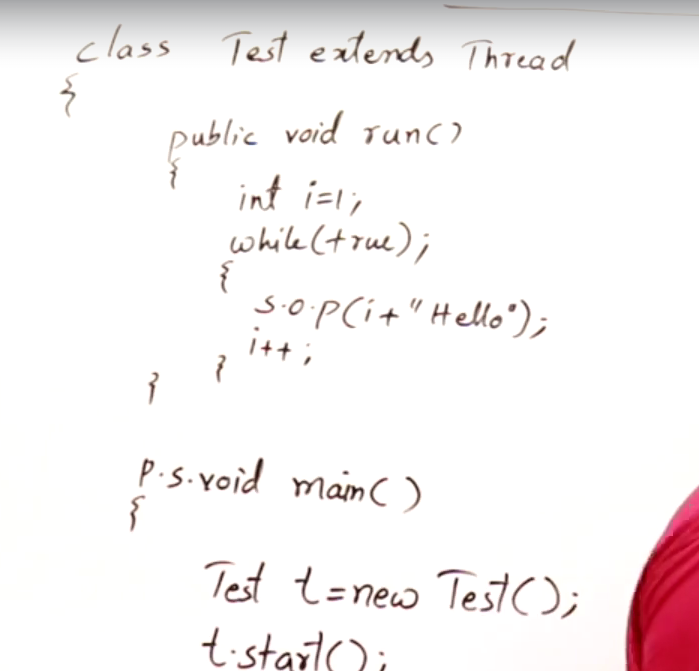 class Test extends Thread
{
public void run()
{
int i=1;
while(true);
{
S.O.P(i+"Hello");
i++;
}
}
P.S.void main()
{
Test t=new Test();
t.start();